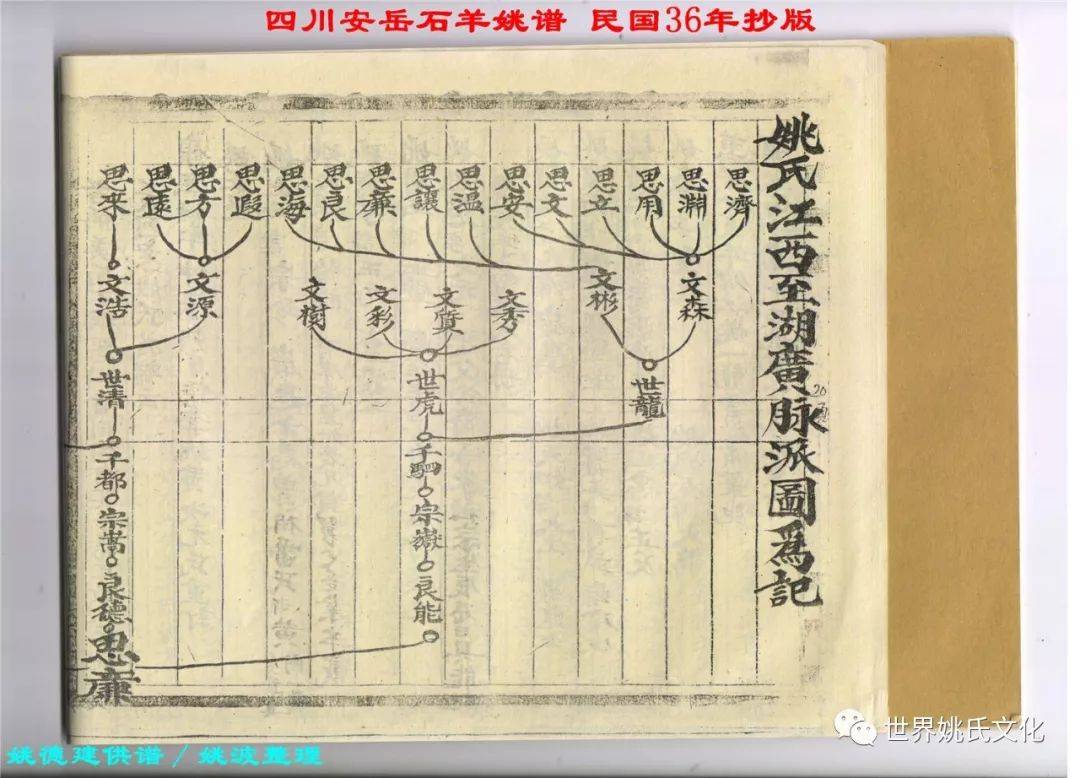 四川安岳石羊姚谱 民国36年抄版
姚氏江西至湖廣脉派圖爲記
思濟
思淵
思用
思立
思文
思安
思温
思讓
思廉
思良
思海
思遐
思方
思遠
思來
文森
文彬
文秀
文質
文彩
文樹
文源
文浩
世龍
世虎
世清
千駟
千都
宗嶽
宗嵩
良能
良德
思廉
姚德建供谱/姚波整理
世界姚氏文化